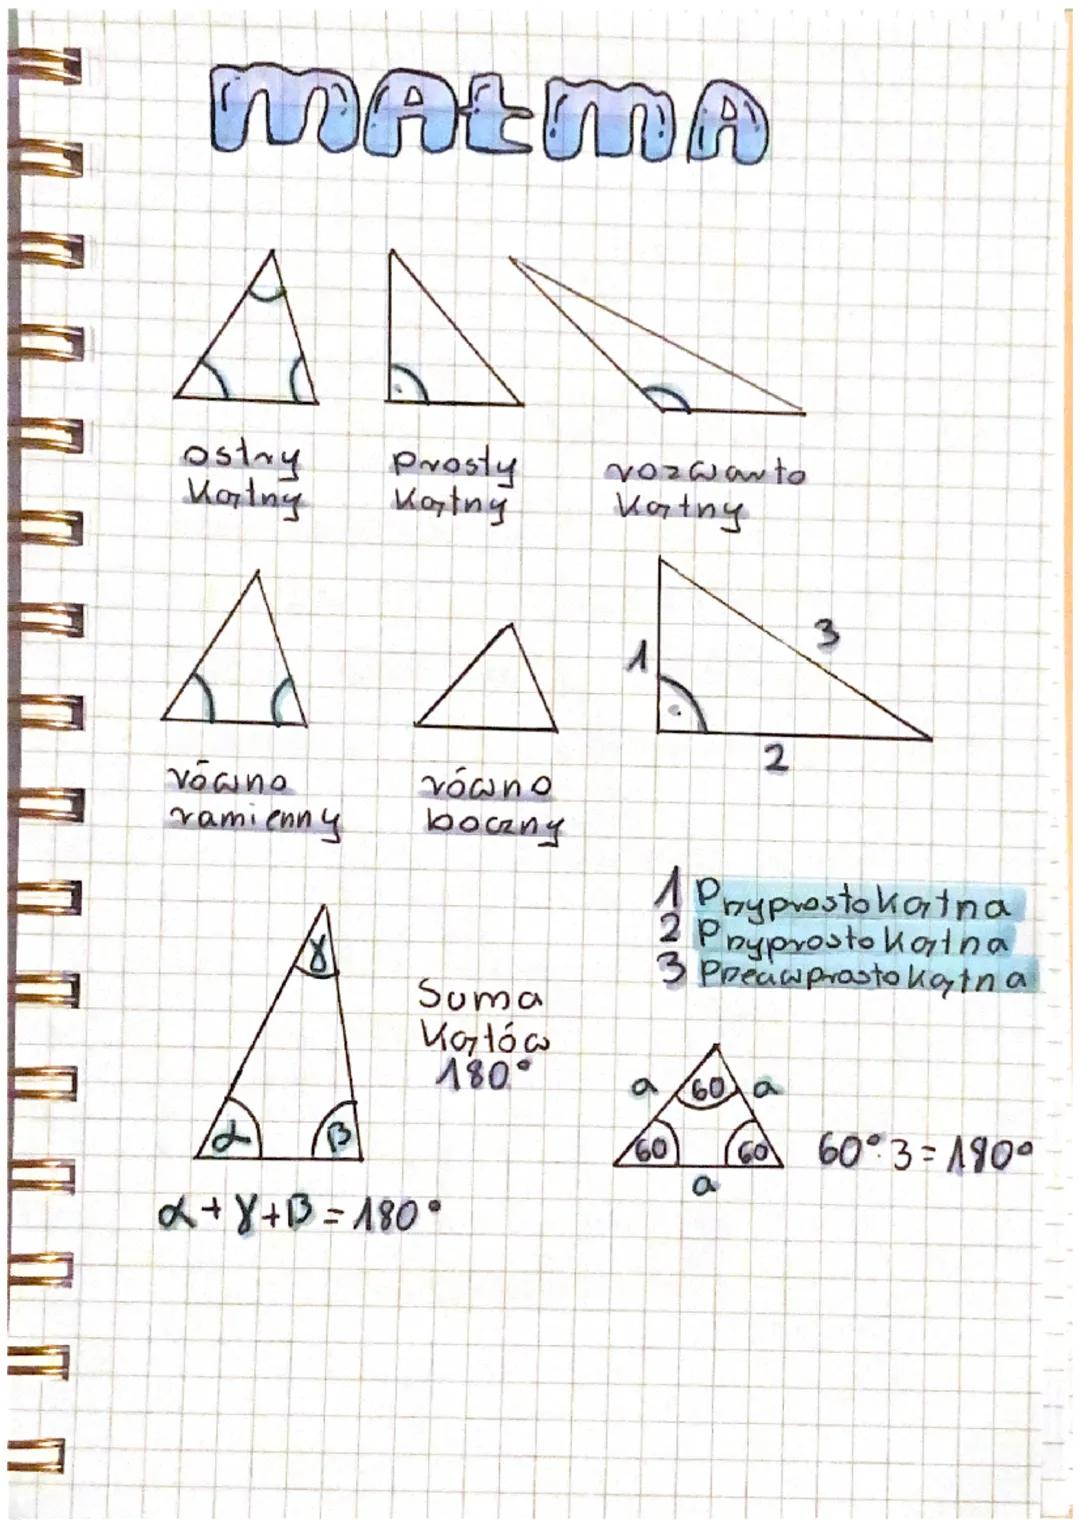 MAtMA
ostry
kątny
prosty
kątny
rozwarto
kątny
1
3
2
równo
ramienny
równo
boczny
1 Przyprostokątna
2 Przyprostokątna
3 Przeciwprostokątna
γ
α
β
Suma
kątów
180°
a
60
a
60
60
a
60°·3=180°
α+γ+β=180°